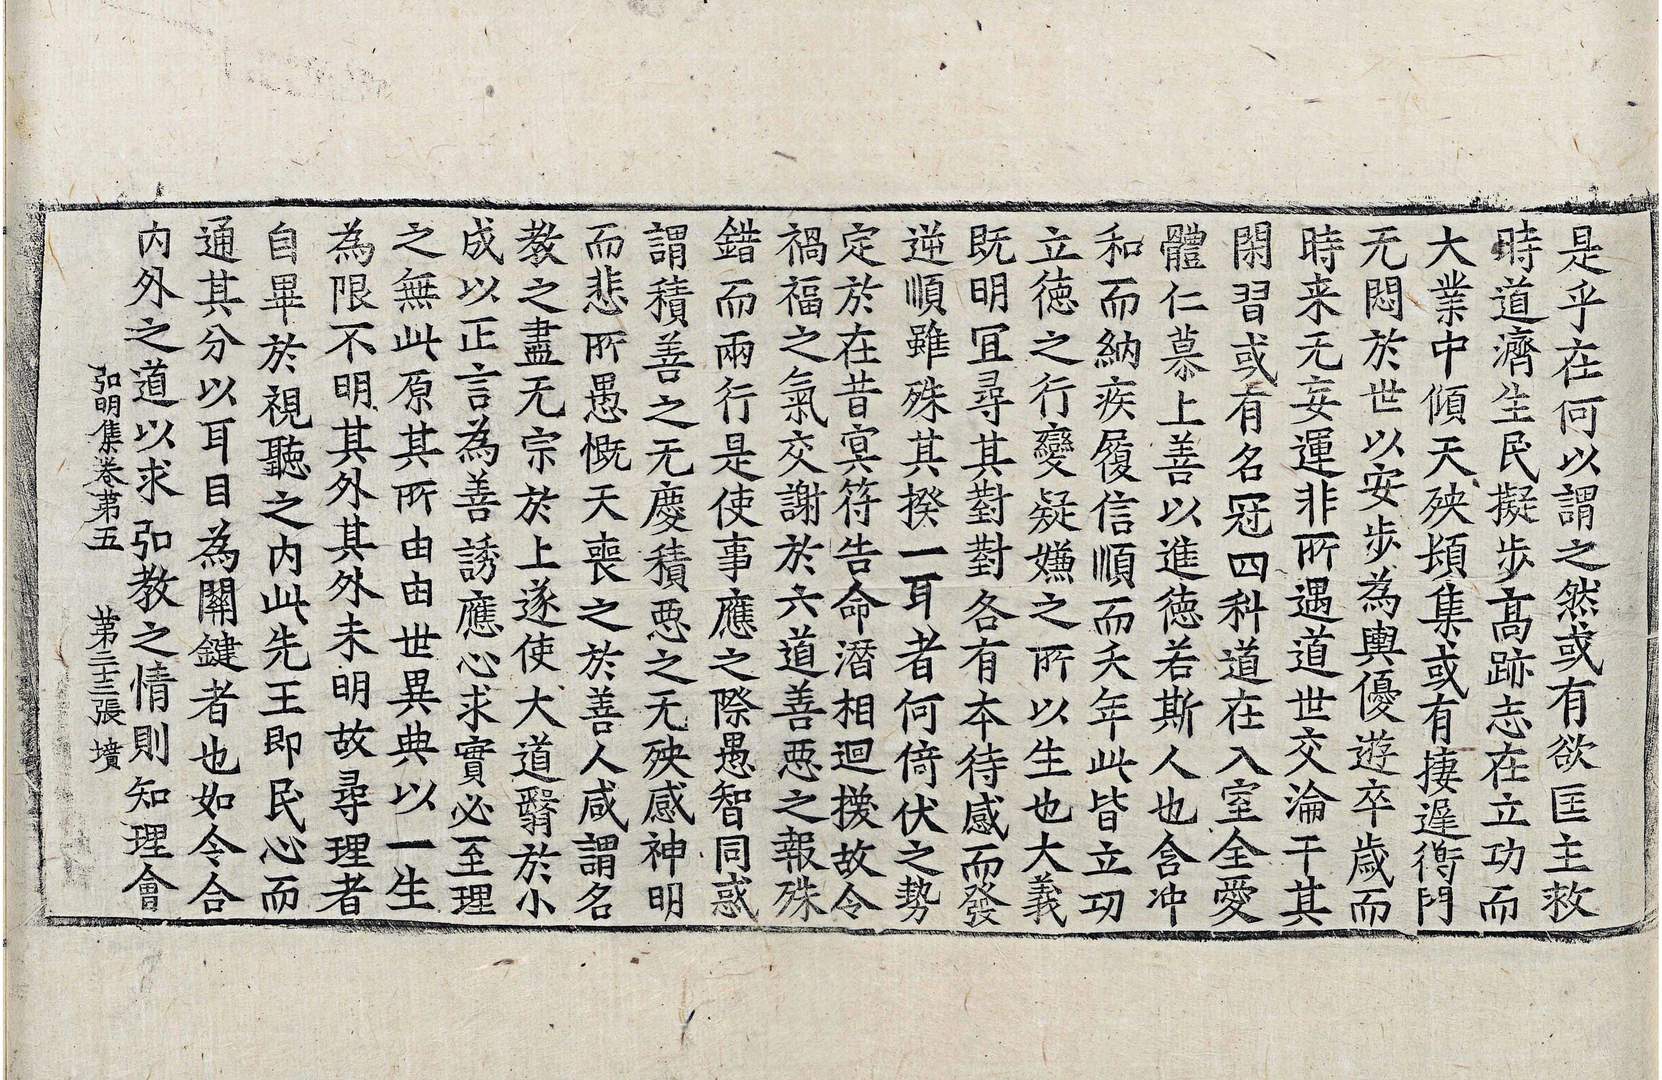 是乎在何以謂之然或有欲匡主救
時道濟生民擬步高跡志在立功而
大業中傾天殃頻集或有棲遲衡門
无悶於世以安步為輿優遊卒歲而
時来无妄運非所遇道世交淪干其
閑習或有名冠四科道在入室全愛
體仁慕上善以進德若斯人也含冲
和而納疾履信順而夭年此皆立功
立德之行變疑嫌之所以生也大義
既明冝尋其對對各有本待感而發
逆順雖殊其揆一耳者何倚伏之勢
定於在昔冥符告命潛相迴掾故令
禍福之氣交謝於六道善惡之報殊
錯而兩行是使事應之際愚智同惑
謂積善之无慶積惡之无殃感神明
而悲所愚慨天喪之於善人咸謂名
教之盡无宗於上遂使大道翳於小
成以正言為善誘應心求實必至理
之無此原其所由由世異典以一生
為限不明其外其外未明故尋理者
自畢於視聽之内此先王即民心而
通其分以耳目為關鍵者也如令合
内外之道以求弘教之情則知理會
弘明集卷第五 第三十三張 墳